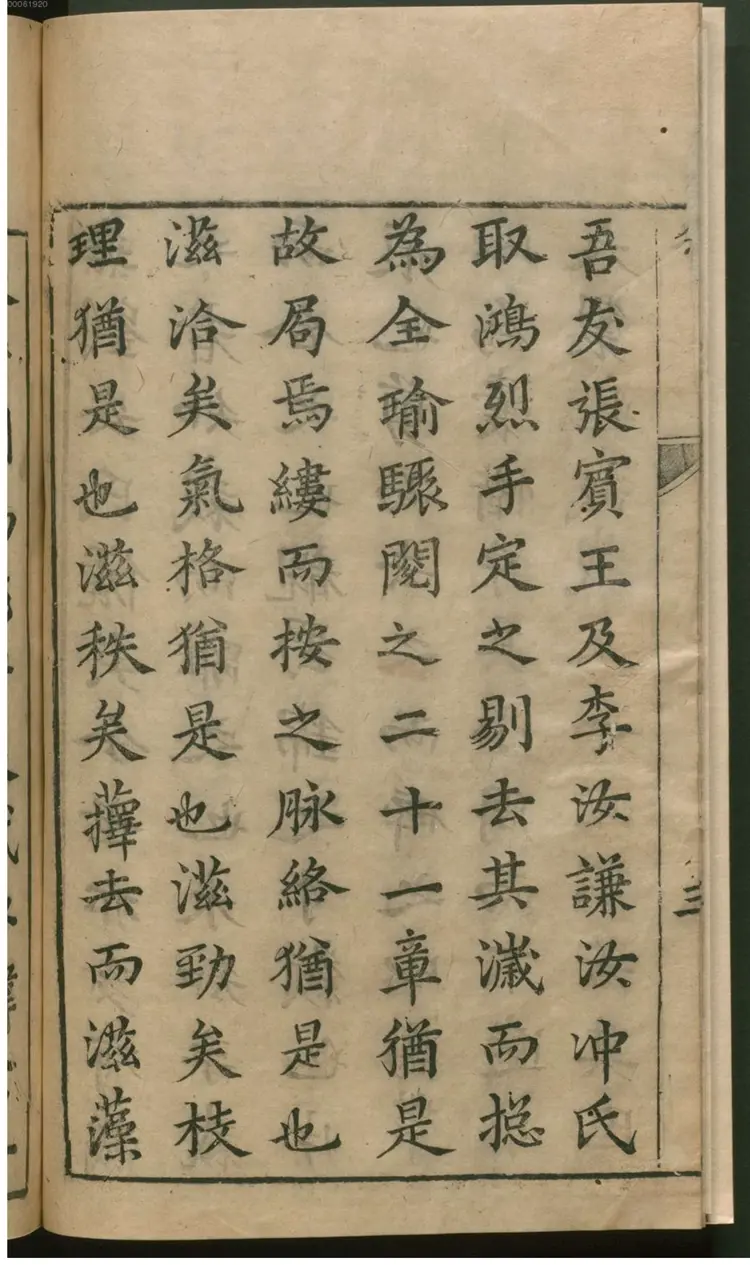 00061920
吾友張賓王及李汝謙汝冲氏
取鴻烈手定之剔去其濊而揔
為全瑜驟閱之二十一章猶是
故局焉縷而按之脉絡猶是也
滋洽矣氣格猶是也滋勁矣枝
理猶是也滋秩矣蘀去而滋藻
三